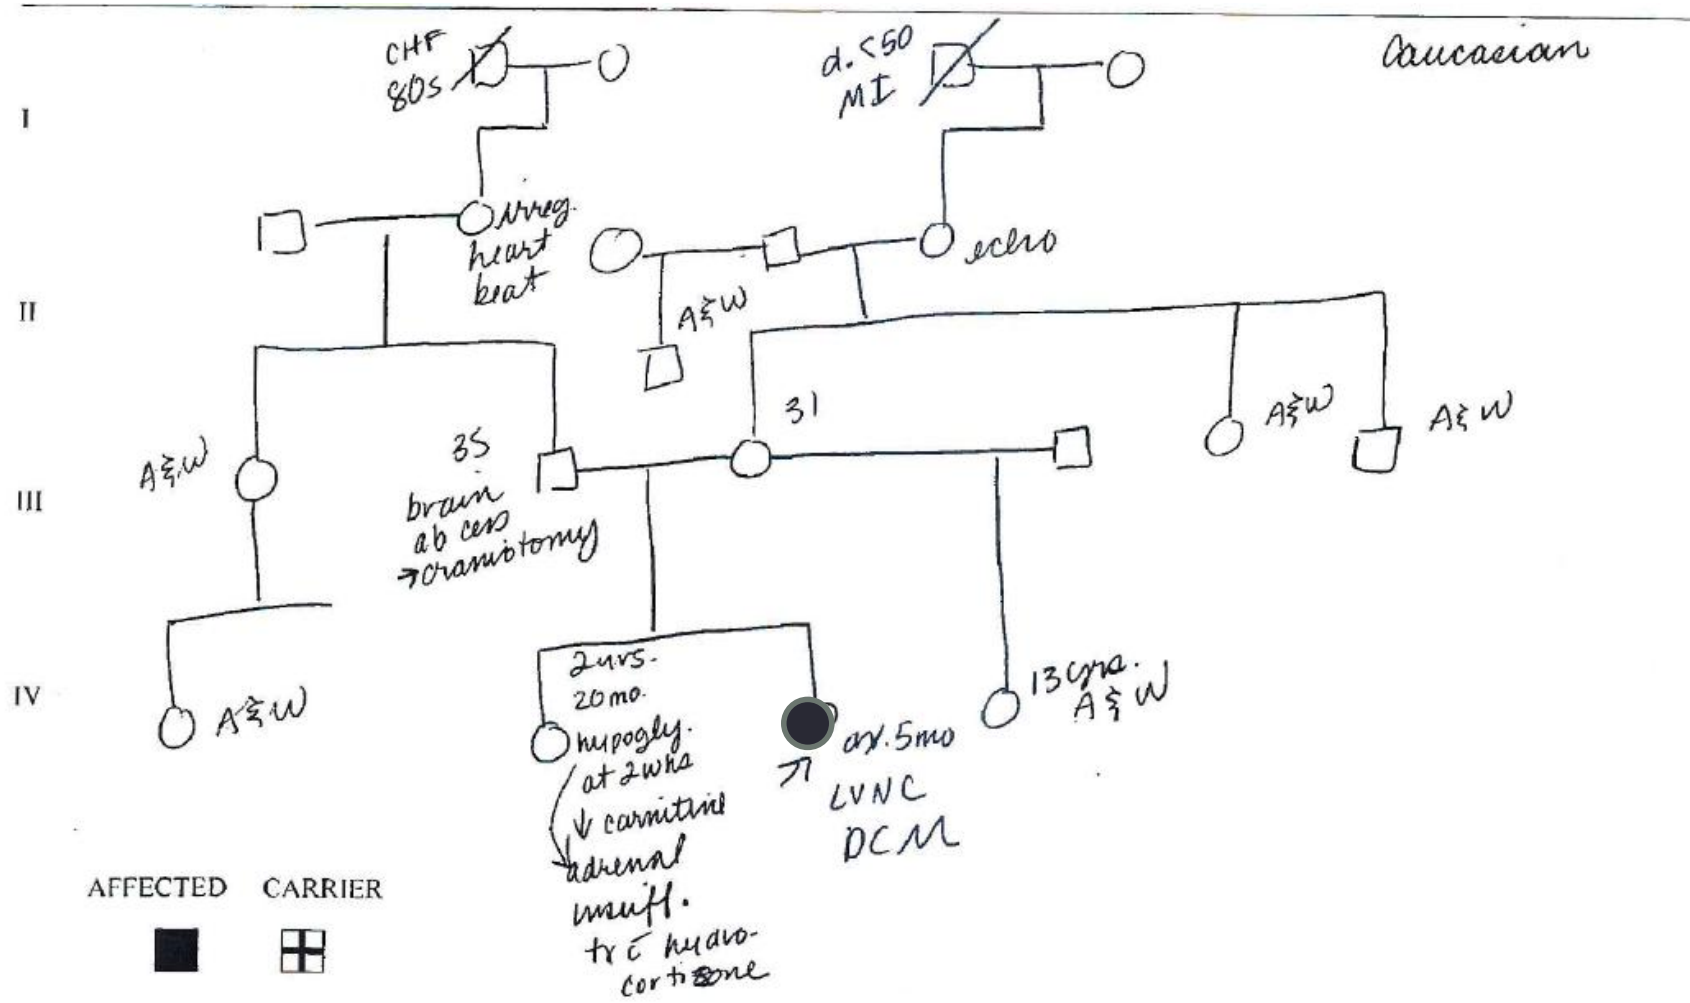 Caucasian
CHF
80s
d. <50
MI
I
irreg.
heart
beat
echo
II
A & W
31
A & W
A & W
A & W
35
brain
abcess
→ craniotomy
III
IV
A & W
2 yrs.
20 mo.
hypogly.
at 2 wks
↓ carnitine
adrenal
insuff.
tx c̄ hydro-
cortisone
5mo
LVNC
DCM
13 yrs.
A & W
AFFECTED CARRIER